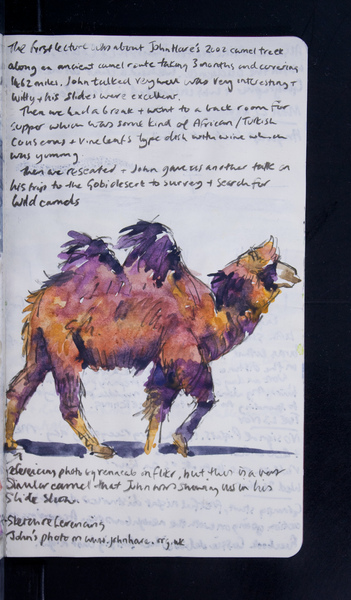 The first lecture was about John Hare's 2002 camel trek
along an ancient camel route taking 3 months and covering
1462 miles. John talked very well was very interesting +
witty + his slides were excellent.
Then we had a break + went to a back room for
supper which was some kind of African/Turkish
Couscous + vine leaf's type dish with wine which
was yummy
Then we reseated + John gave us another talk on
his trip to the Gobi desert to survey + search for
wild camels
referencing photo by on flickr, but this is a very
similar camel that John was showing us in his
Slide Show.
Sketch referencing
John's photo on www.johnhare.org.uk